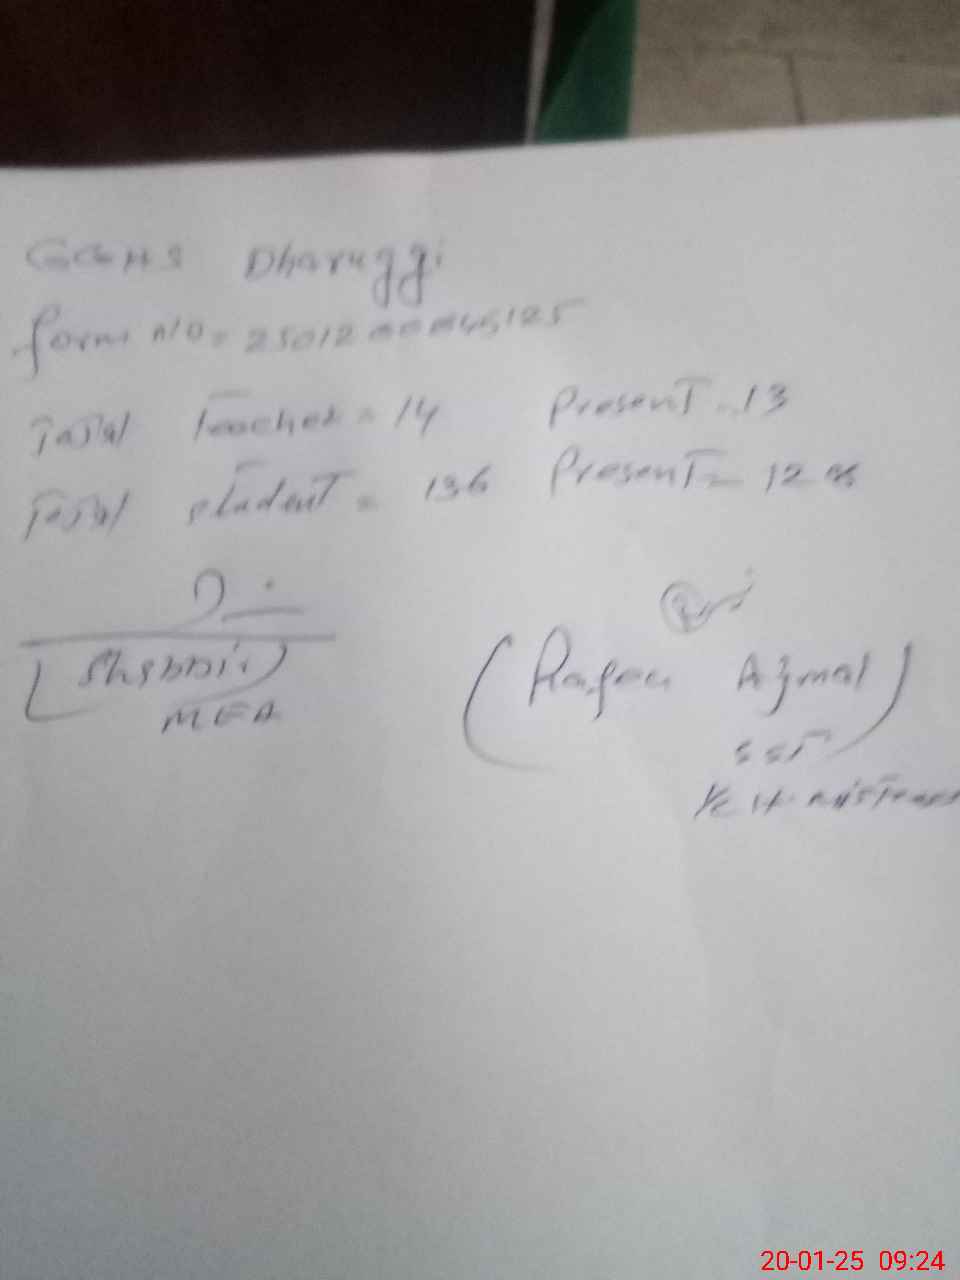 GGHS Dharuggi
form n/o = 2501200046125
Total Teacher = 14 Present = 13
Total student = 136 Present = 128
(Shabbir)
MEA
(Rafea Ajmal)
SST
I/C H.
20-01-25 09:24